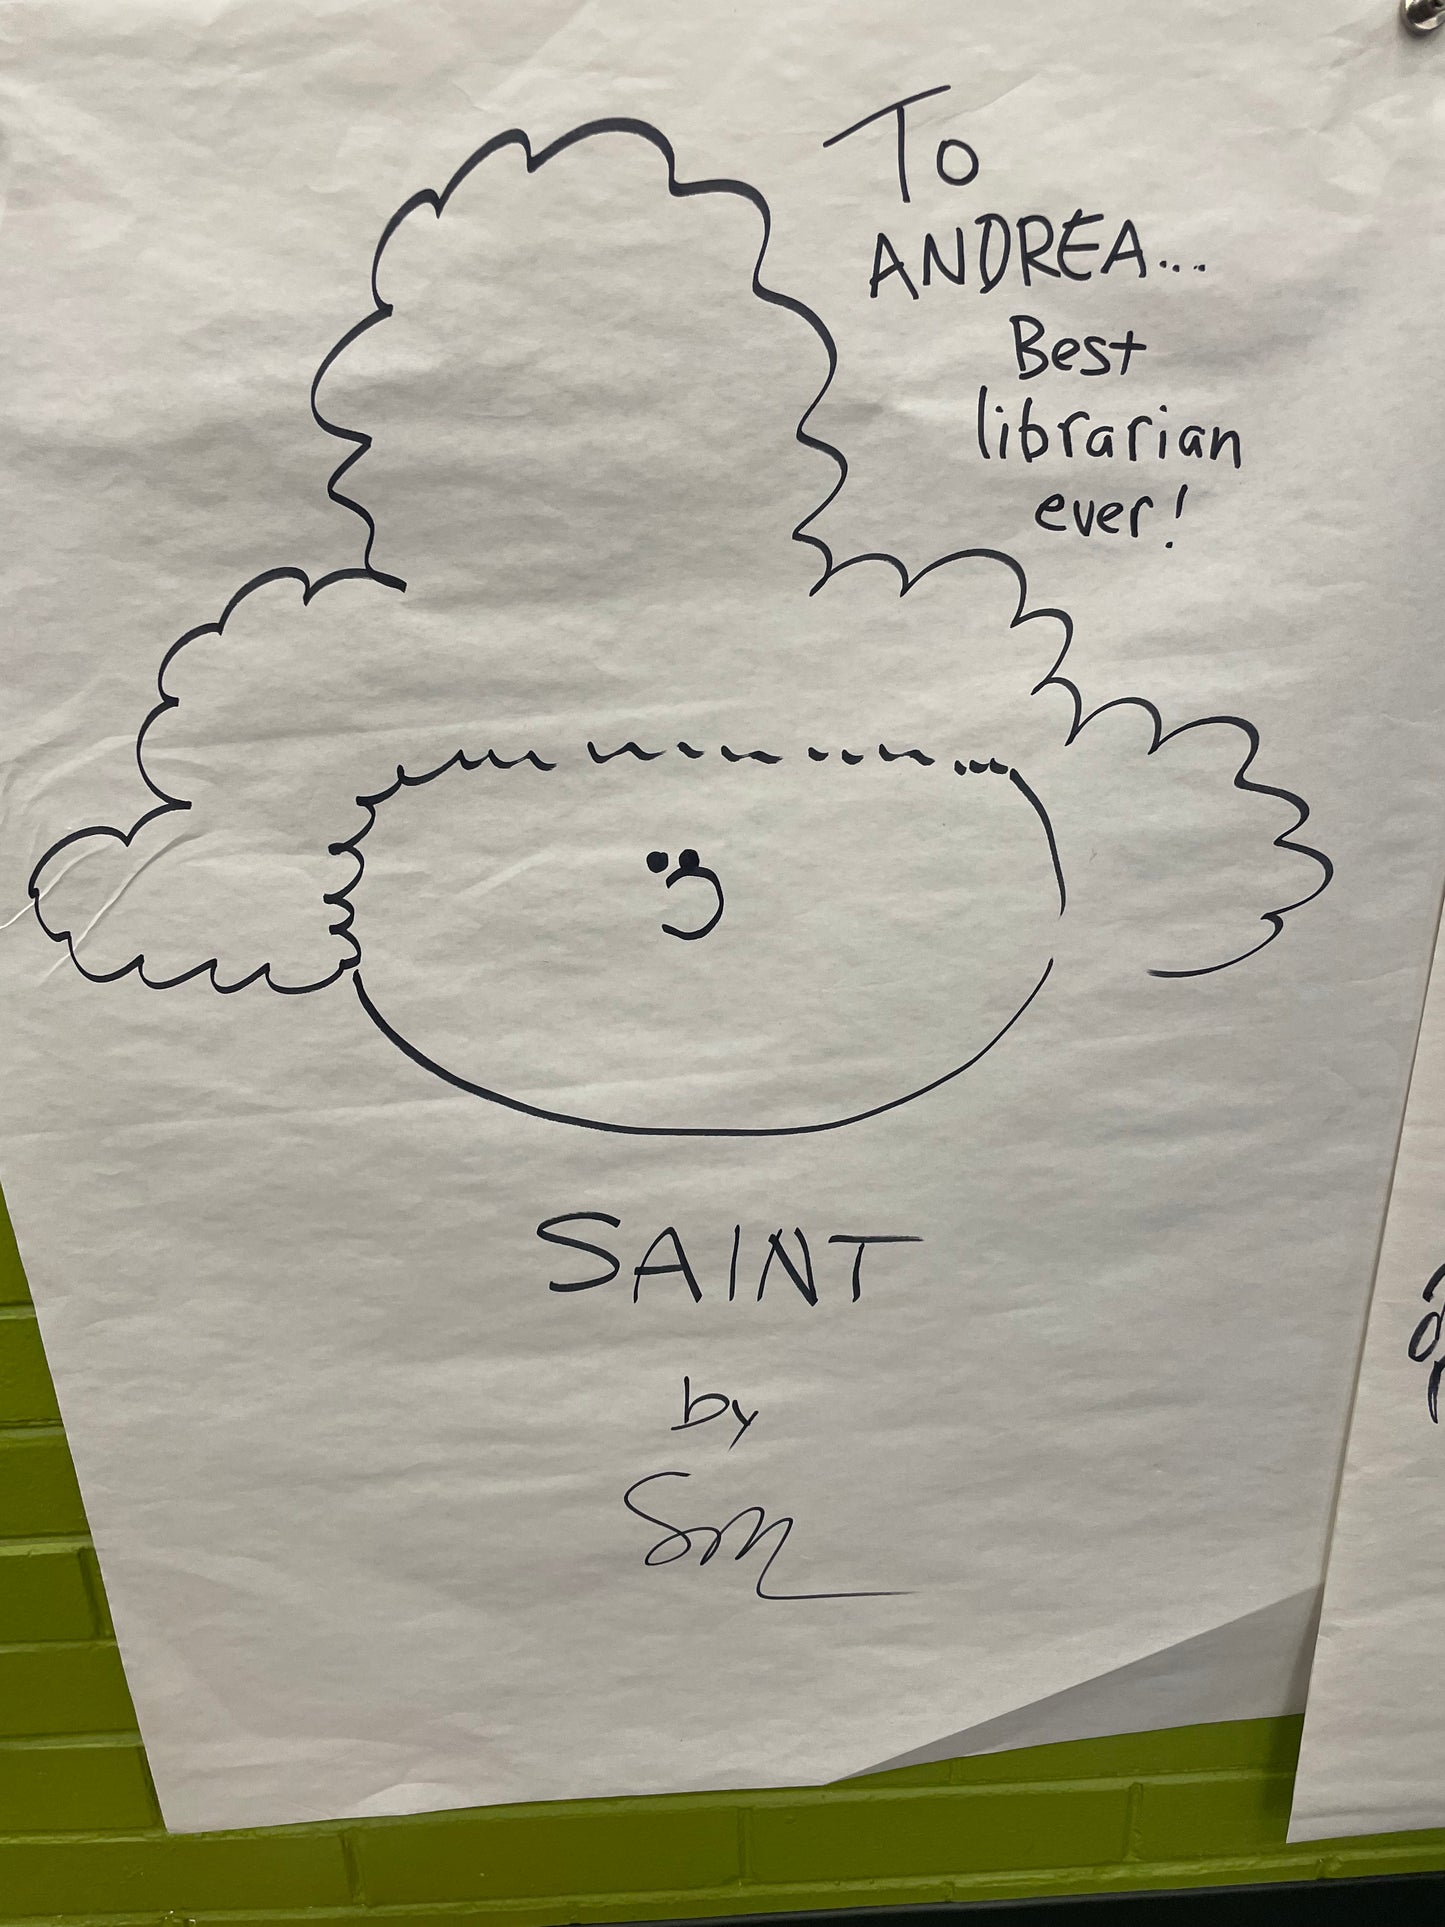 To
ANDREA...
Best
librarian
ever!
SAINT
by